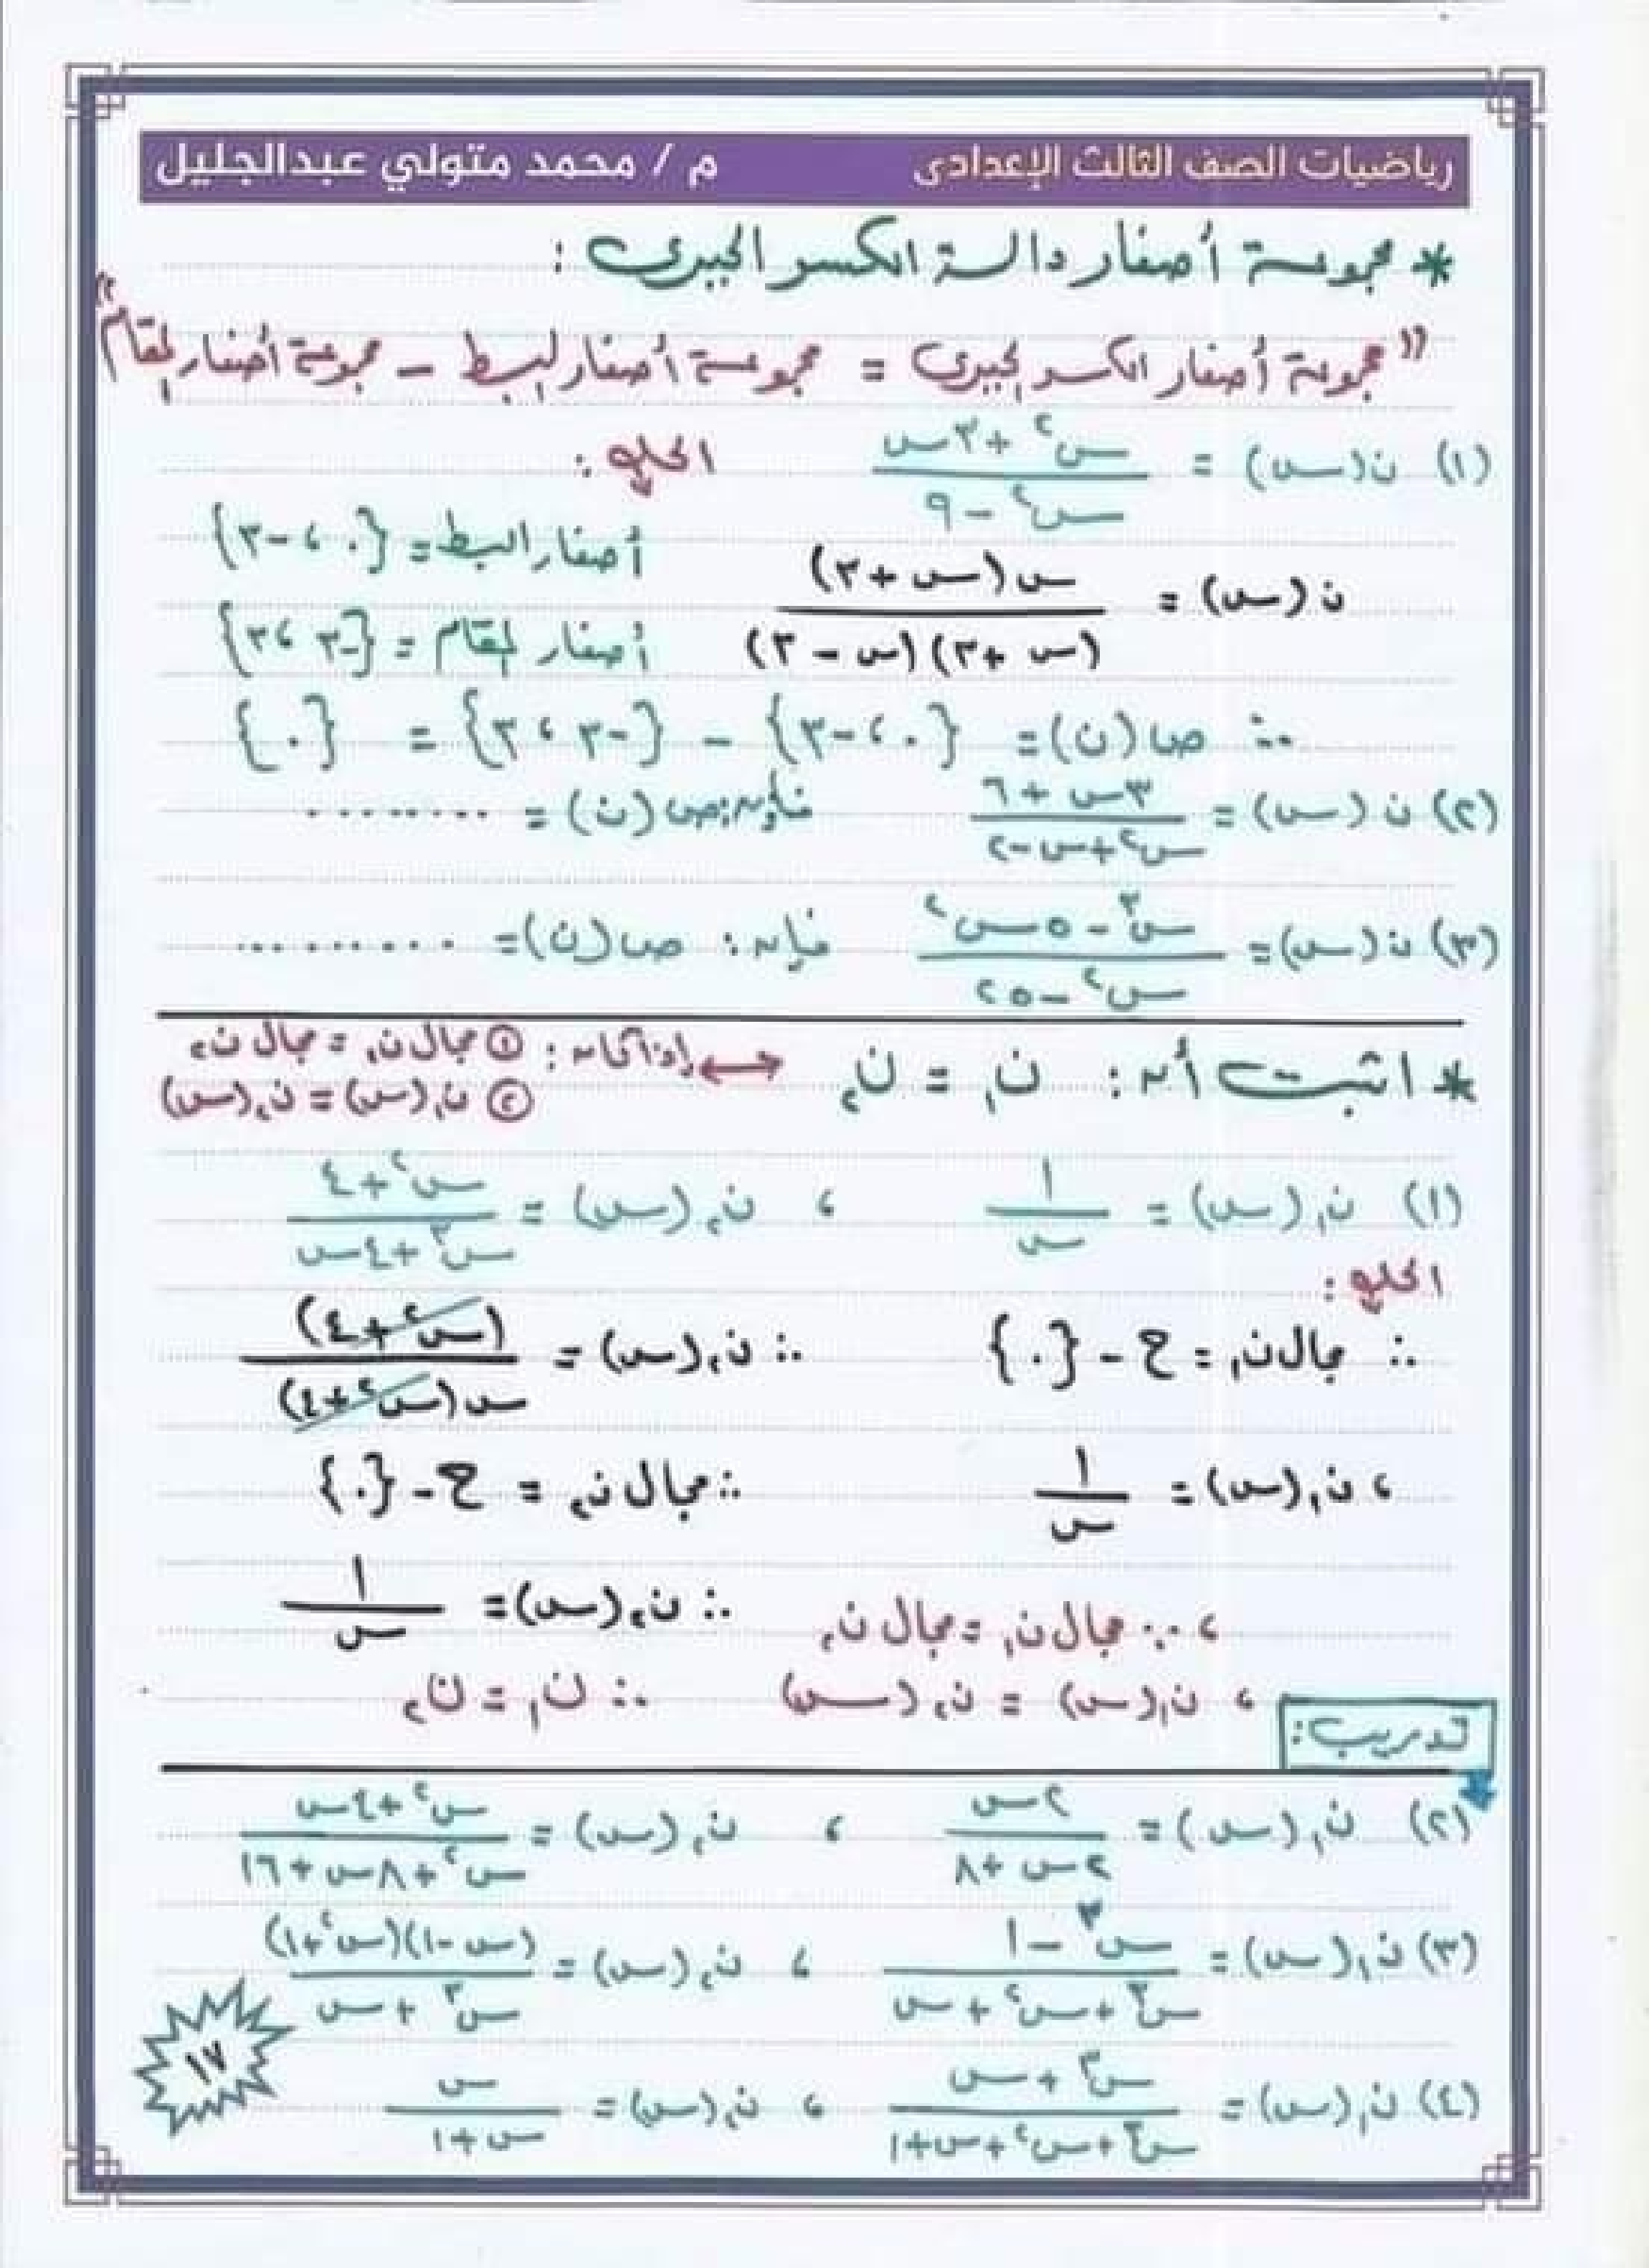 رياضيات الصف الثالث الإعدادى م / محمد متولي عبدالجليل
* مجموعة أصفار دالة الكسر الجبرى :
" مجموعة أصفار الكسر الجبرى = مجموعة أصفار البسط – مجموعة أصفار المقام "
(١) ن(س) = (س² + ٣س) / (س² - ٩) الحل :
ن(س) = س(س + ٣) / (س + ٣)(س - ٣) أصفار البسط = {٠ ، -٣}
أصفار المقام = {-٣ ، ٣}
∴ ص(ن) = {٠ ، -٣} – {-٣ ، ٣} = {٠}
(٢) ن(س) = (٣س + ٦) / (س² + س - ٢) فإن: ص(ن) = ........
(٣) ن(س) = (س³ - ٥س²) / (س² - ٢٥) فإن : ص(ن) = ..........
* اثبت أن : ن₁ = ن₂ ↔ إذا كان : ① مجال ن₁ = مجال ن₂
② ن₁(س) = ن₂(س)
(١) ن₁(س) = ١ / س ، ن₂(س) = (س² + ٤) / (س³ + ٤س)
الحل :
∴ مجال ن₁ = ح - {٠} ∴ ن₂(س) = (س² + ٤) / س(س² + ٤)
، ن₁(س) = ١ / س ∴ مجال ن₂ = ح - {٠}
∴ ن₂(س) = ١ / س
، ∵ مجال ن₁ = مجال ن₂
، ن₁(س) = ن₂(س) ∴ ن₁ = ن₂
تدريب :
(٢) ن₁(س) = ٢س / (٢س + ٨) ، ن₂(س) = (س² + ٤س) / (س² + ٨س + ١٦)
(٣) ن₁(س) = (س³ - ١) / (س³ + س² + س) ، ن₂(س) = (س - ١)(س² + ١) / (س³ + س)
(٤) ن₁(س) = (س³ + س) / (س³ + س² + س + ١) ، ن₂(س) = س / (س + ١)
١٧